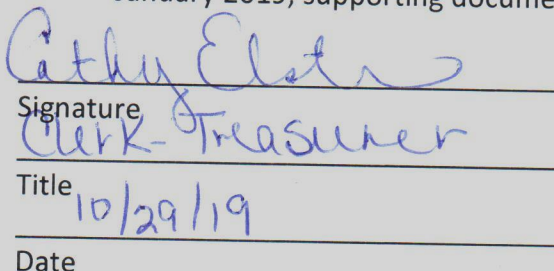 January 2019, supporting docume
Cathy
Signature
Clerk-Treasurer
Title
10/29/19
Date